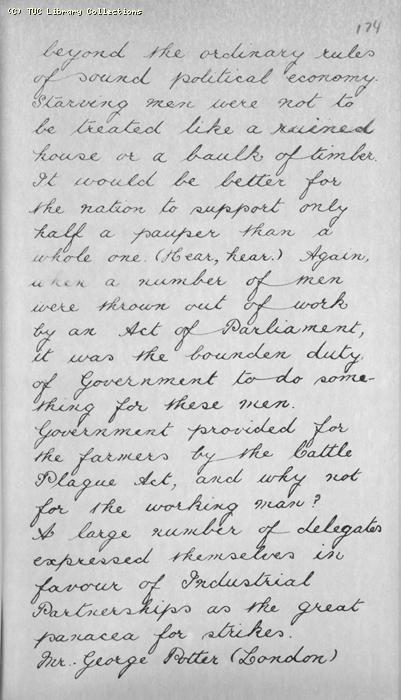 (C) TUC Library Collections
174
beyond the ordinary rules
of sound political economy.
Starving men were not to
be treated like a ruined
house or a baulk of timber.
It would be better for
the nation to support only
half a pauper than a
whole one. (Hear, hear.) Again,
when a number of men
were thrown out of work
by an Act of Parliament,
it was the bounden duty
of Government to do some-
thing for these men.
Government provided for
the farmers by the Cattle
Plague Act, and why not
for the working man?
A large number of delegates
expressed themselves in
favour of Industrial
Partnerships as the great
panacea for strikes.
Mr. George Potter (London)